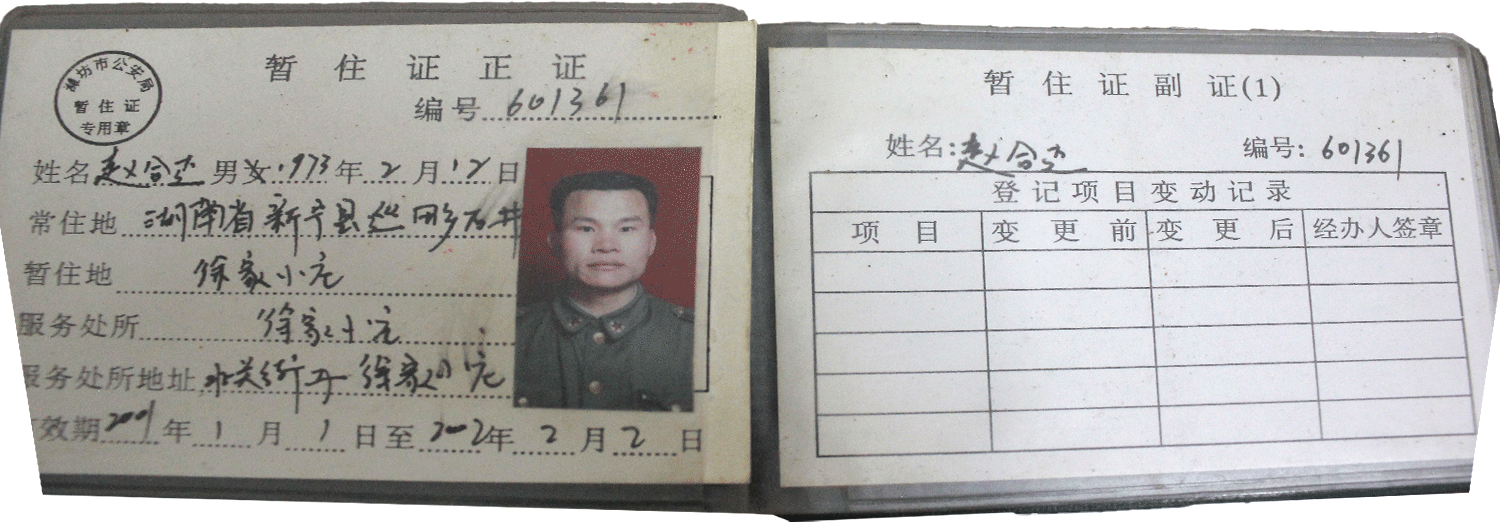 潍坊市公安局
暂住证
专用章
暂住证正证
编号 601361
姓名 赵合 男女 1973年2月12日
常住地 湖南省新宁县 乡石井
暂住地 徐家小庄
服务处所 徐家小庄
服务处所地址 水关街办徐家小庄
效期2001年1月1日至2002年2月2日
暂住证副证(1)
姓名: 赵合 编号: 601361
登记项目变动记录
项目 变更前 变更后 经办人签章